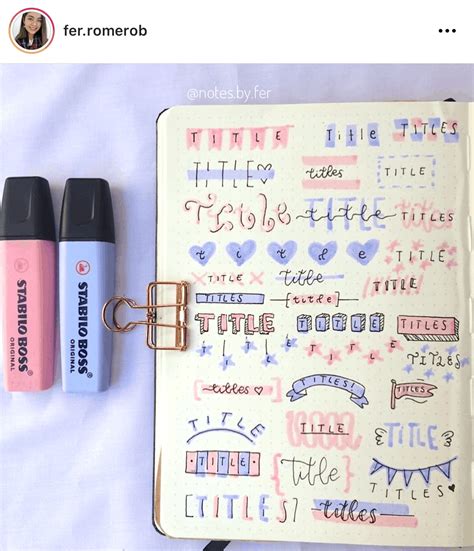 fer.romerob
@notes.by.fer
STABILO BOSS
ORIGINAL
STABILO BOSS
ORIGINAL
TITLE Title TITLES
TITLE♡ titles TITLE
Title title TITLES
title TITLE
TITLE title TITLE
TITLES {title}
TITLE TITLE TITLES
TITLE TITLE TITLES
titles♥ TITLES! TITLE
TITLE TITLE TITLE
TITLE {title} TITLES
[TITLES] titles